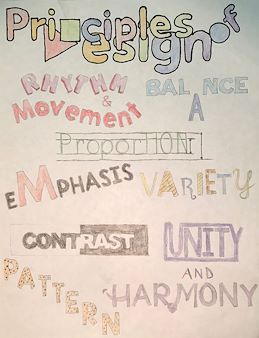 Principles of
Design
RHYTHM
&
Movement
BALANCE
PropoRTION
eMPHASIS
VARIETY
CONTRAST
UNITY
AND
HARMONY
PATTERN